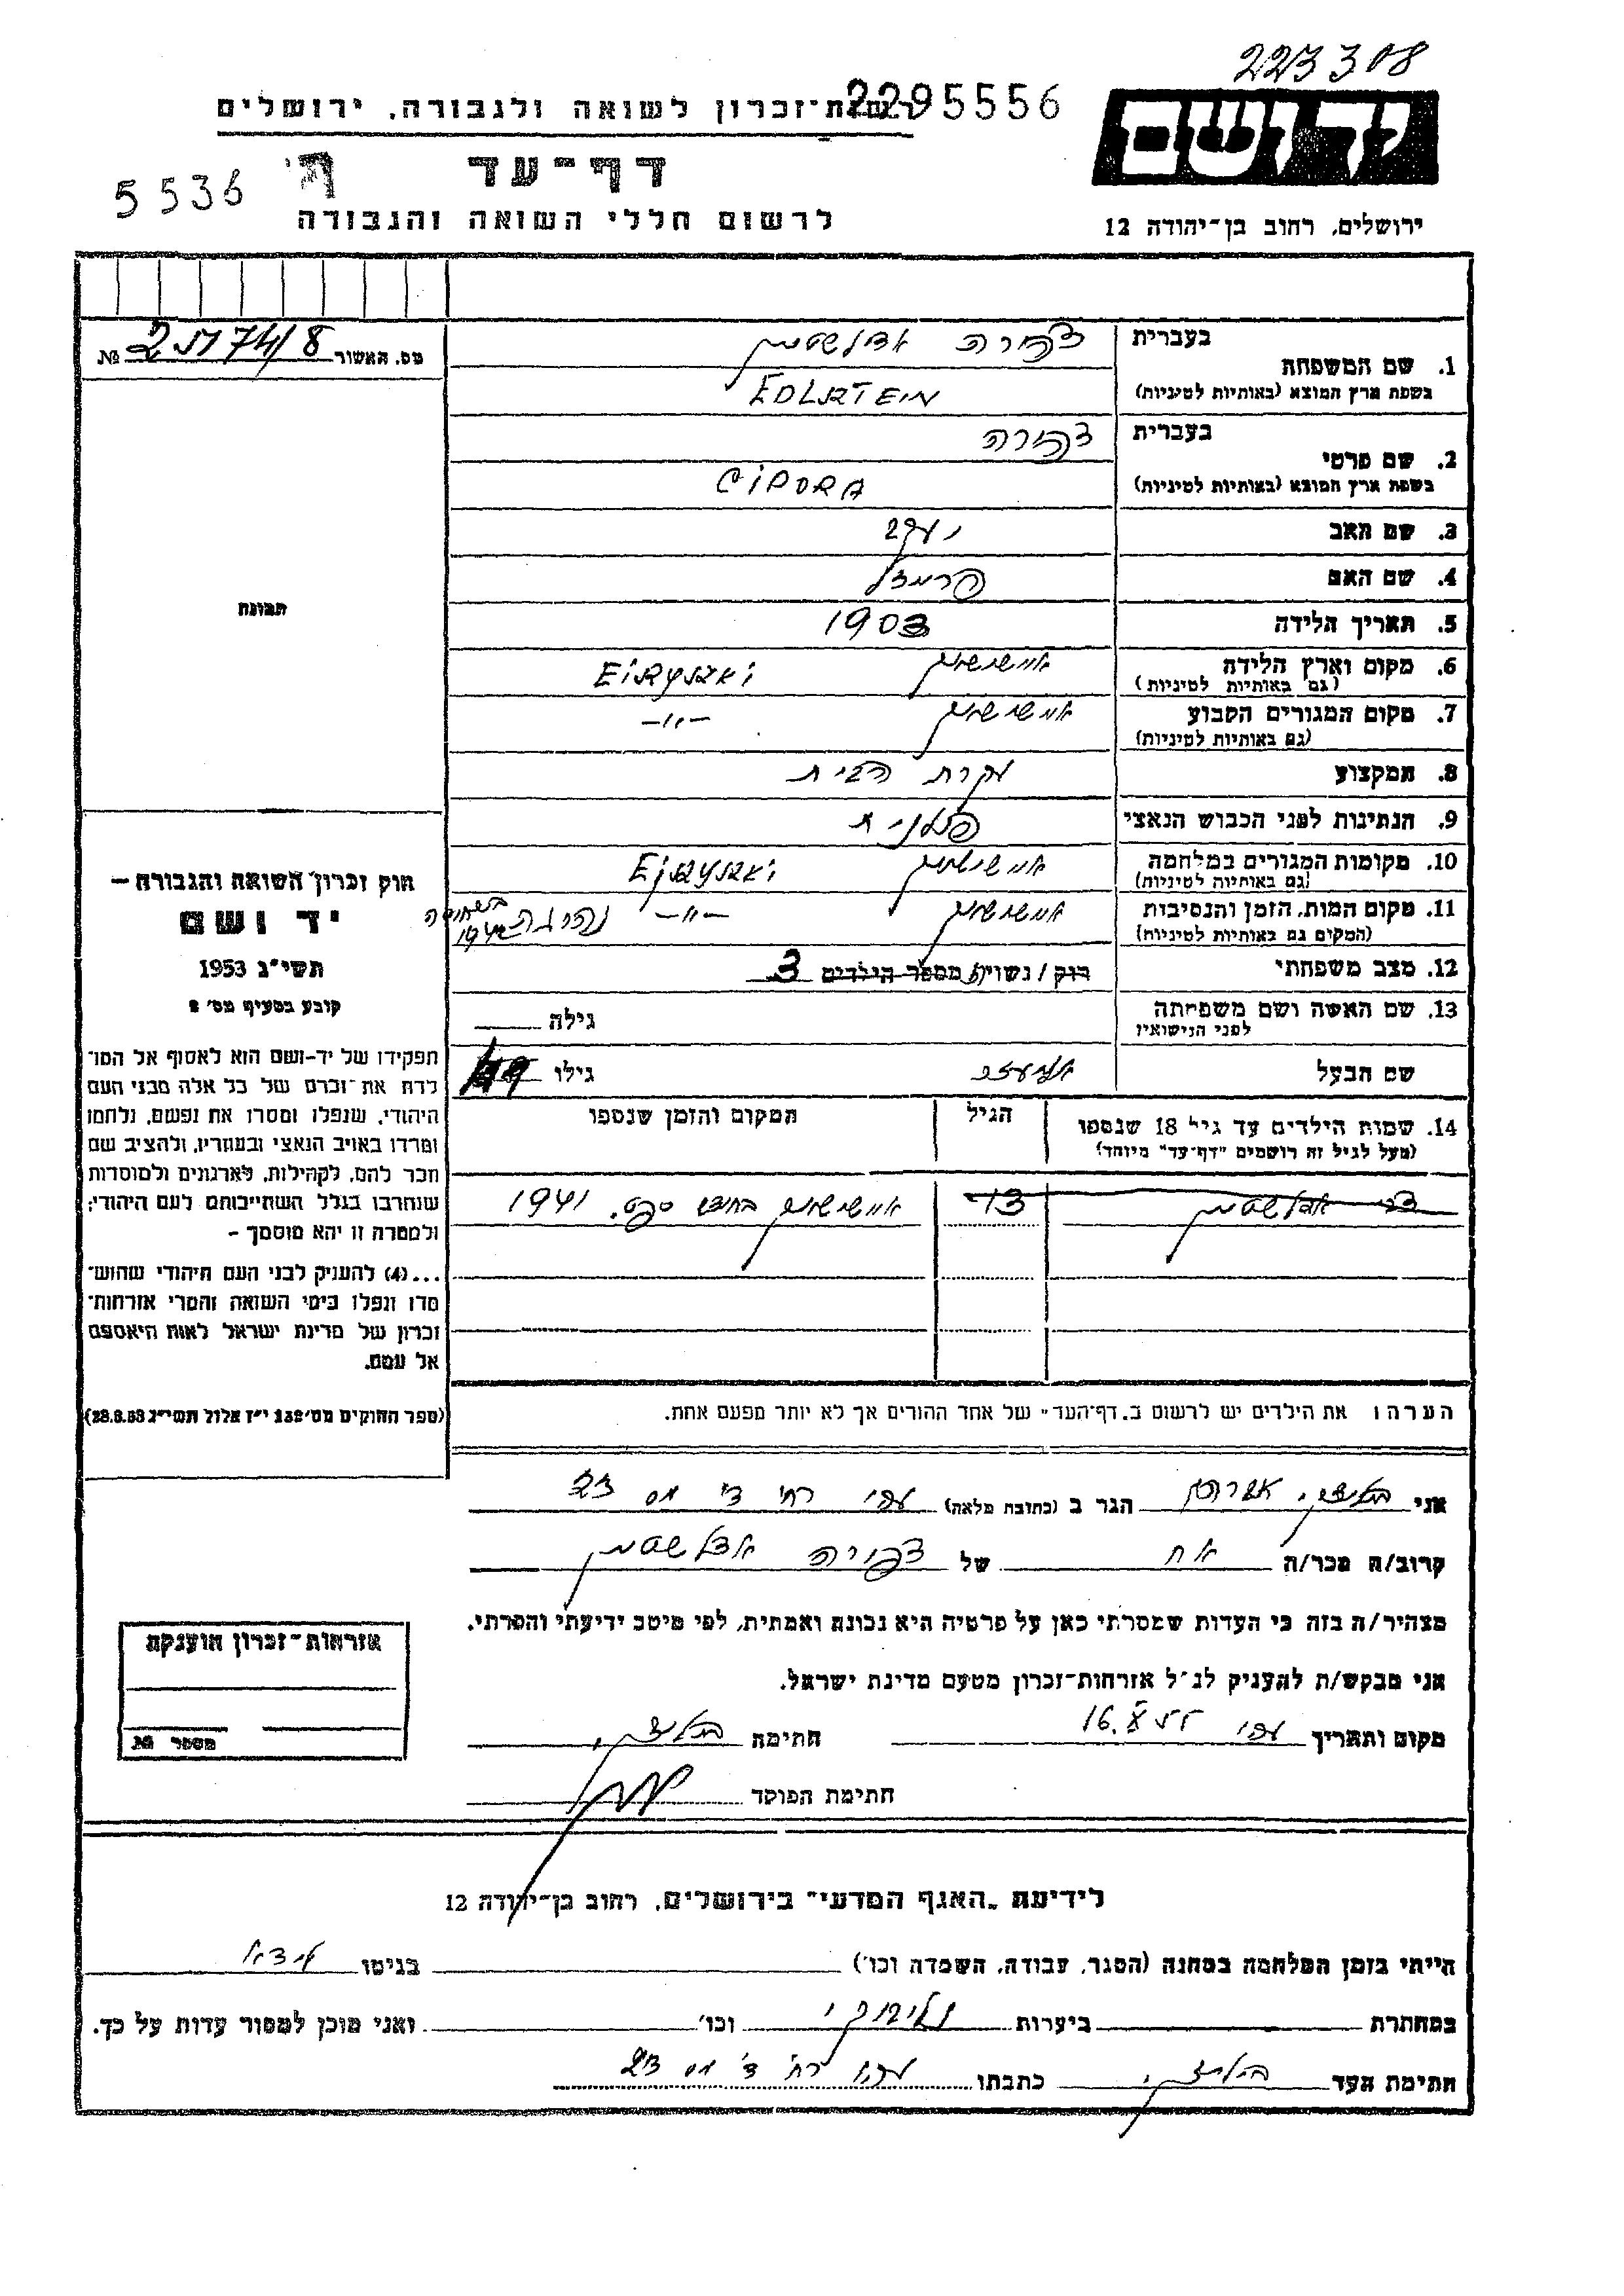 223308
רשות-זכרון לשואה ולגבורה, ירושלים
2295556
יד ושם
דף-עד
5536
לרשום חללי השואה והגבורה
ירושלים, רחוב בן-יהודה 12
מס. האשור №
בעברית צפורה אדלשטיין
1. שם המשפחה
בשפת ארץ המוצא (באותיות לטיניות) EDLSTEIN
בעברית צפורה
2. שם פרטי
בשפת ארץ המוצא (באותיות לטיניות) CIPORA
3. שם האב יעקב
4. שם האם פרומצל
5. תאריך הלידה 1903
6. מקום וארץ הלידה
(גם באותיות לטיניות)
7. מקום המגורים הקבוע
(גם באותיות לטיניות) -"-
8. המקצוע עקרת הבית
9. הנתינות לפני הכבוש הנאצי פולנית
10. מקומות המגורים במלחמה
(גם באותיות לטיניות)
11. מקום המות, הזמן והנסיבות -"- נהרגה
(המקום גם באותיות לטיניות)
12. מצב משפחתי רווק / נשוי מספר הילדים 3
13. שם האשה ושם משפחתה
לפני הנישואין גילה
שם הבעל אליעזר גילו
14. שמות הילדים עד גיל 18 שנספו הגיל המקום והזמן שנספו
(מעל לגיל זה רושמים "דף-עד" מיוחד)
אדלשטיין 13 1941
הערה: את הילדים יש לרשום ב"דף-העד" של אחד ההורים אך לא יותר מפעם אחת.
תמונה
חוק זכרון השואה והגבורה –
יד ושם
תשי"ג 1953
קובע בסעיף מס' 2
תפקידו של יד-ושם הוא לאסוף אל המו־
לדת את זכרם של כל אלה מבני העם
היהודי, שנפלו ומסרו את נפשם, נלחמו
ומרדו באויב הנאצי ובעוזריו, ולהציב שם
וזכר להם, לקהילות, לארגונים ולמוסדות
שנחרבו בגלל השתייכותם לעם היהודי;
ולמטרה זו יהא מוסמך –
...(4) להעניק לבני העם היהודי שהוש־
מדו ונפלו בימי השואה והמרי אזרחות־
זכרון של מדינת ישראל לאות היאספם
אל עמם.
(ספר החוקים מס' 132 י"ז אלול תשי"ג 28.8.53)
אני אברהם הגר ב (כתובת מלאה) עכו רח' ד' מס
קרוב/ה מכר/ה אח של צפורה אדלשטיין
מצהיר/ה בזה כי העדות שמסרתי כאן על פרטיה היא נכונה ואמתית, לפי מיטב ידיעתי והכרתי.
אני מבקש/ת להעניק לנ"ל אזרחות-זכרון מטעם מדינת ישראל.
מקום ותאריך עכו חתימה
חתימת הפוקד
אזרחות-זכרון הוענקה
מספר №
לידיעת "האגף המדעי" בירושלים, רחוב בן-יהודה 12
הייתי בזמן המלחמה במחנה (הסגר, עבודה, השמדה וכו') בגיטו לידא
במחתרת ביערות וכו' ואני מוכן למסור עדות על כך.
חתימת העד כתבתו עכו רח' ד' מס